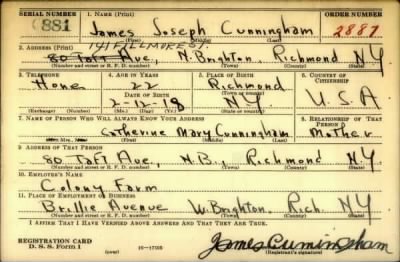 SERIAL NUMBER 1. NAME (Print) ORDER NUMBER
881 James Joseph Cunningham 2887
(First) (Middle) (Last)
141 FILLMORE ST.
2. ADDRESS (Print)
80 Taft Ave, N. Brighton, Richmond NY
(Number and street or R. F. D. number) (Town) (County) (State)
3. TELEPHONE 4. AGE IN YEARS 5. PLACE OF BIRTH 6. COUNTRY OF CITIZENSHIP
None 22 Richmond
DATE OF BIRTH (Town or county)
2-12-18 NY U.S.A
(Exchange) (Number) (Mo.) (Day) (Yr.) (State or country)
7. NAME OF PERSON WHO WILL ALWAYS KNOW YOUR ADDRESS 8. RELATIONSHIP OF THAT PERSON
Catherine Mary Cunningham Mother
(Mr., Mrs., Miss) (First) (Middle) (Last)
9. ADDRESS OF THAT PERSON
80 Taft Ave., N.B., Richmond N.Y.
(Number and street or R. F. D. number) (Town) (County) (State)
10. EMPLOYER'S NAME
Colony Farm
11. PLACE OF EMPLOYMENT OR BUSINESS
Brillie Avenue W. Brighton, Rich. NY
(Number and street or R. F. D. number) (Town) (County) (State)
I AFFIRM THAT I HAVE VERIFIED ABOVE ANSWERS AND THAT THEY ARE TRUE.
REGISTRATION CARD
D. S. S. Form 1 (over) James Cunningham
(Registrant's signature)